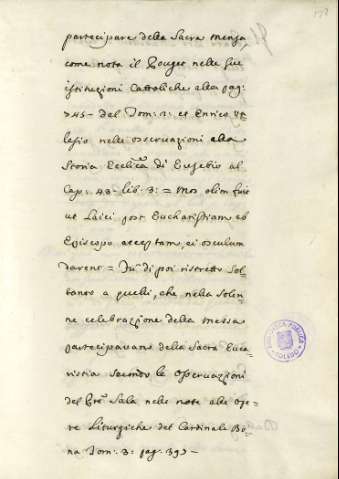 partecipare della Sacra mensa
come nota il Pouget nelle sue
istituzioni Cattoliche alla pag:
745- del Tom: 2: et Enrico Va
lesio nelle osservazioni alla
Storia Eccl.ca di Eusebio al
Cap: 43- lib: 3: = Mos olim fuit
ut Laici post Eucharistiam ab
Episcopo acceptam, ei osculum
darent = Fu di poi ristretto sol=
tanto a quelli, che nella solen=
ne celebrazione della messa
partecipavano della Sacra Euca=
ristia secondo le osservazioni
del Sala nelle note alle ope=
re Liturgiche del Cardinale Bo=
na Tom: 3: pag: 392-
BIBLIOTECA PUBLICA
TOLEDO